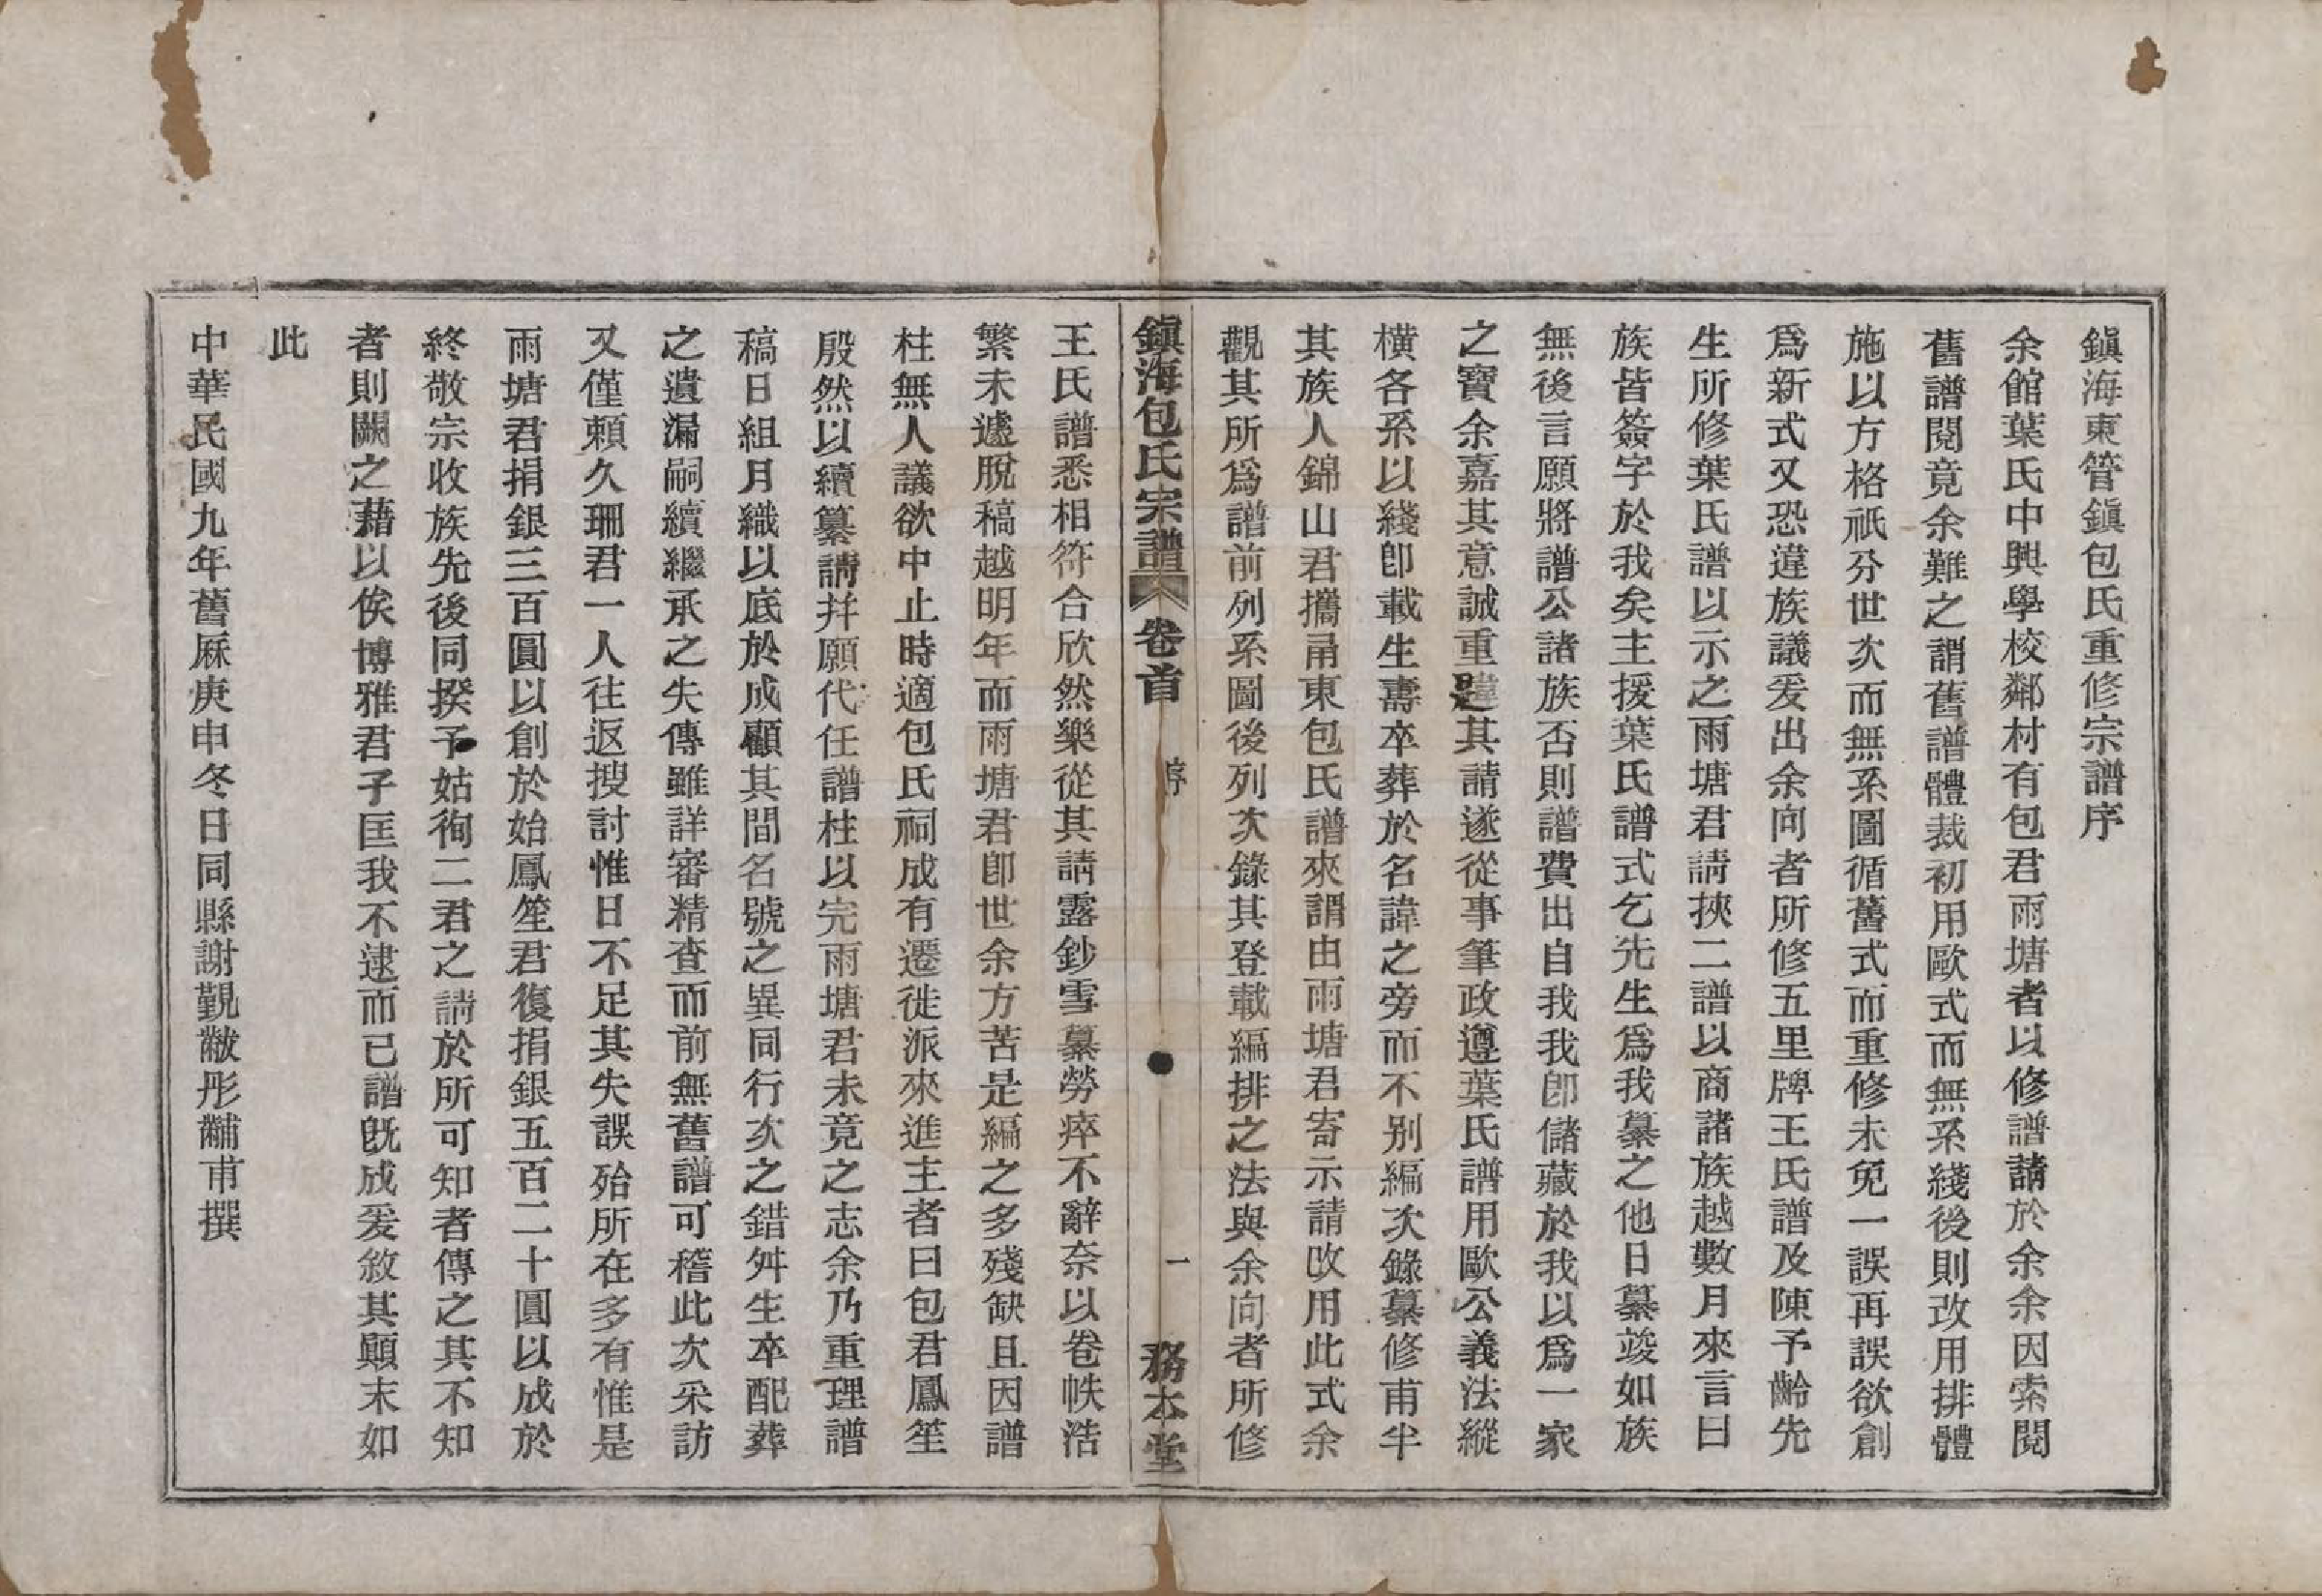 鎮海東管鎮包氏重修宗譜序
余館葉氏中興學校鄰村有包君雨塘者以修譜請於余余因索閱
舊譜閱竟余難之謂舊譜體裁初用歐式而無系綫後則改用排體
施以方格祇分世次而無系圖循舊式而重修未免一誤再誤欲創
爲新式又恐違族議爰出余向者所修五里牌王氏譜及陳予齡先
生所修葉氏譜以示之雨塘君請挾二譜以商諸族越數月來言曰
族皆簽字於我矣主援葉氏譜式乞先生爲我纂之他日纂竣如族
無後言願將譜公諸族否則譜費出自我我卽儲藏於我以爲一家
之寶余嘉其意誠重違其請遂從事筆政遵葉氏譜用歐公義法縱
橫各系以綫卽載生壽卒葬於名諱之旁而不別編次錄纂修甫半
其族人錦山君攜甬東包氏譜來謂由雨塘君寄示請改用此式余
觀其所爲譜前列系圖後列次錄其登載編排之法與余向者所修
鎮海包氏宗譜 卷首 序 一 務本堂
王氏譜悉相符合欣然樂從其請露鈔雪纂勞瘁不辭奈以卷帙浩
繁未遽脫稿越明年而雨塘君卽世余方苦是編之多殘缺且因譜
柱無人議欲中止時適包氏祠成有遷徙派來進主者曰包君鳳笙
殷然以續纂請幷願代任譜柱以完雨塘君未竟之志余乃重理譜
稿日組月織以底於成顧其間名號之異同行次之錯舛生卒配葬
之遺漏嗣續繼承之失傳雖詳審精查而前無舊譜可稽此次采訪
又僅賴久珊君一人往返搜討惟日不足其失誤殆所在多有惟是
雨塘君捐銀三百圓以創於始鳳笙君復捐銀五百二十圓以成於
終敬宗收族先後同揆予姑徇二君之請於所可知者傳之其不知
者則闕之藉以俟博雅君子匡我不逮而已譜旣成爰敘其顚末如
此
中華民國九年舊厤庚申冬日同縣謝覲黻彤黼甫撰